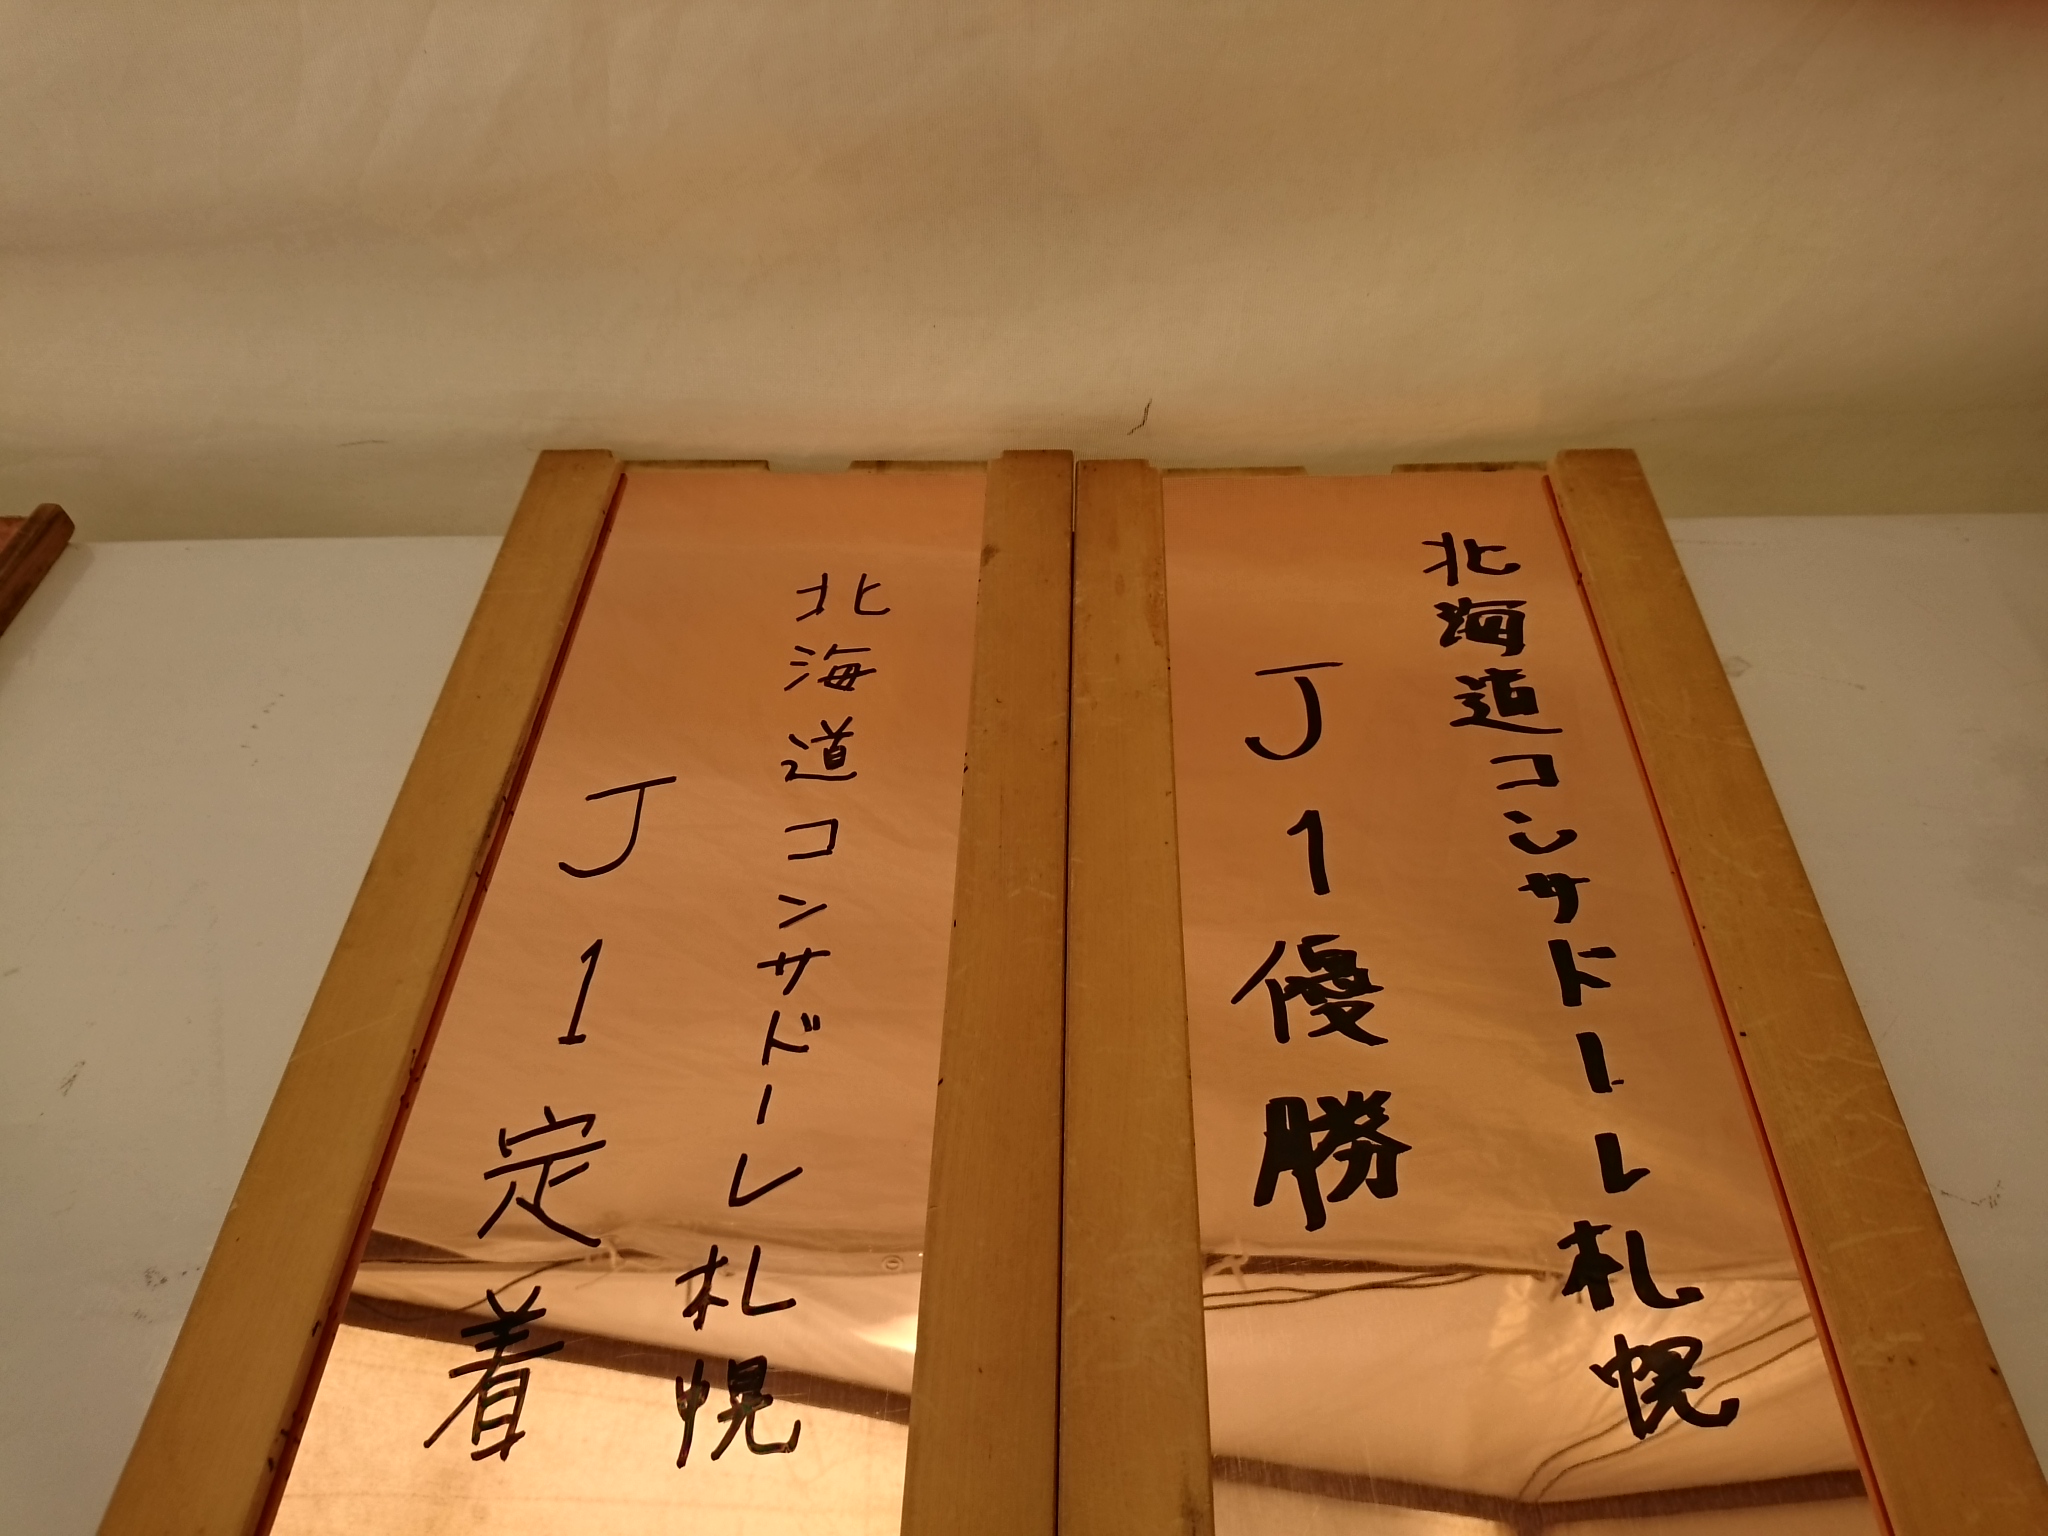 北海道コンサドーレ札幌
J1優勝
北海道コンサドーレ札幌
J1定着